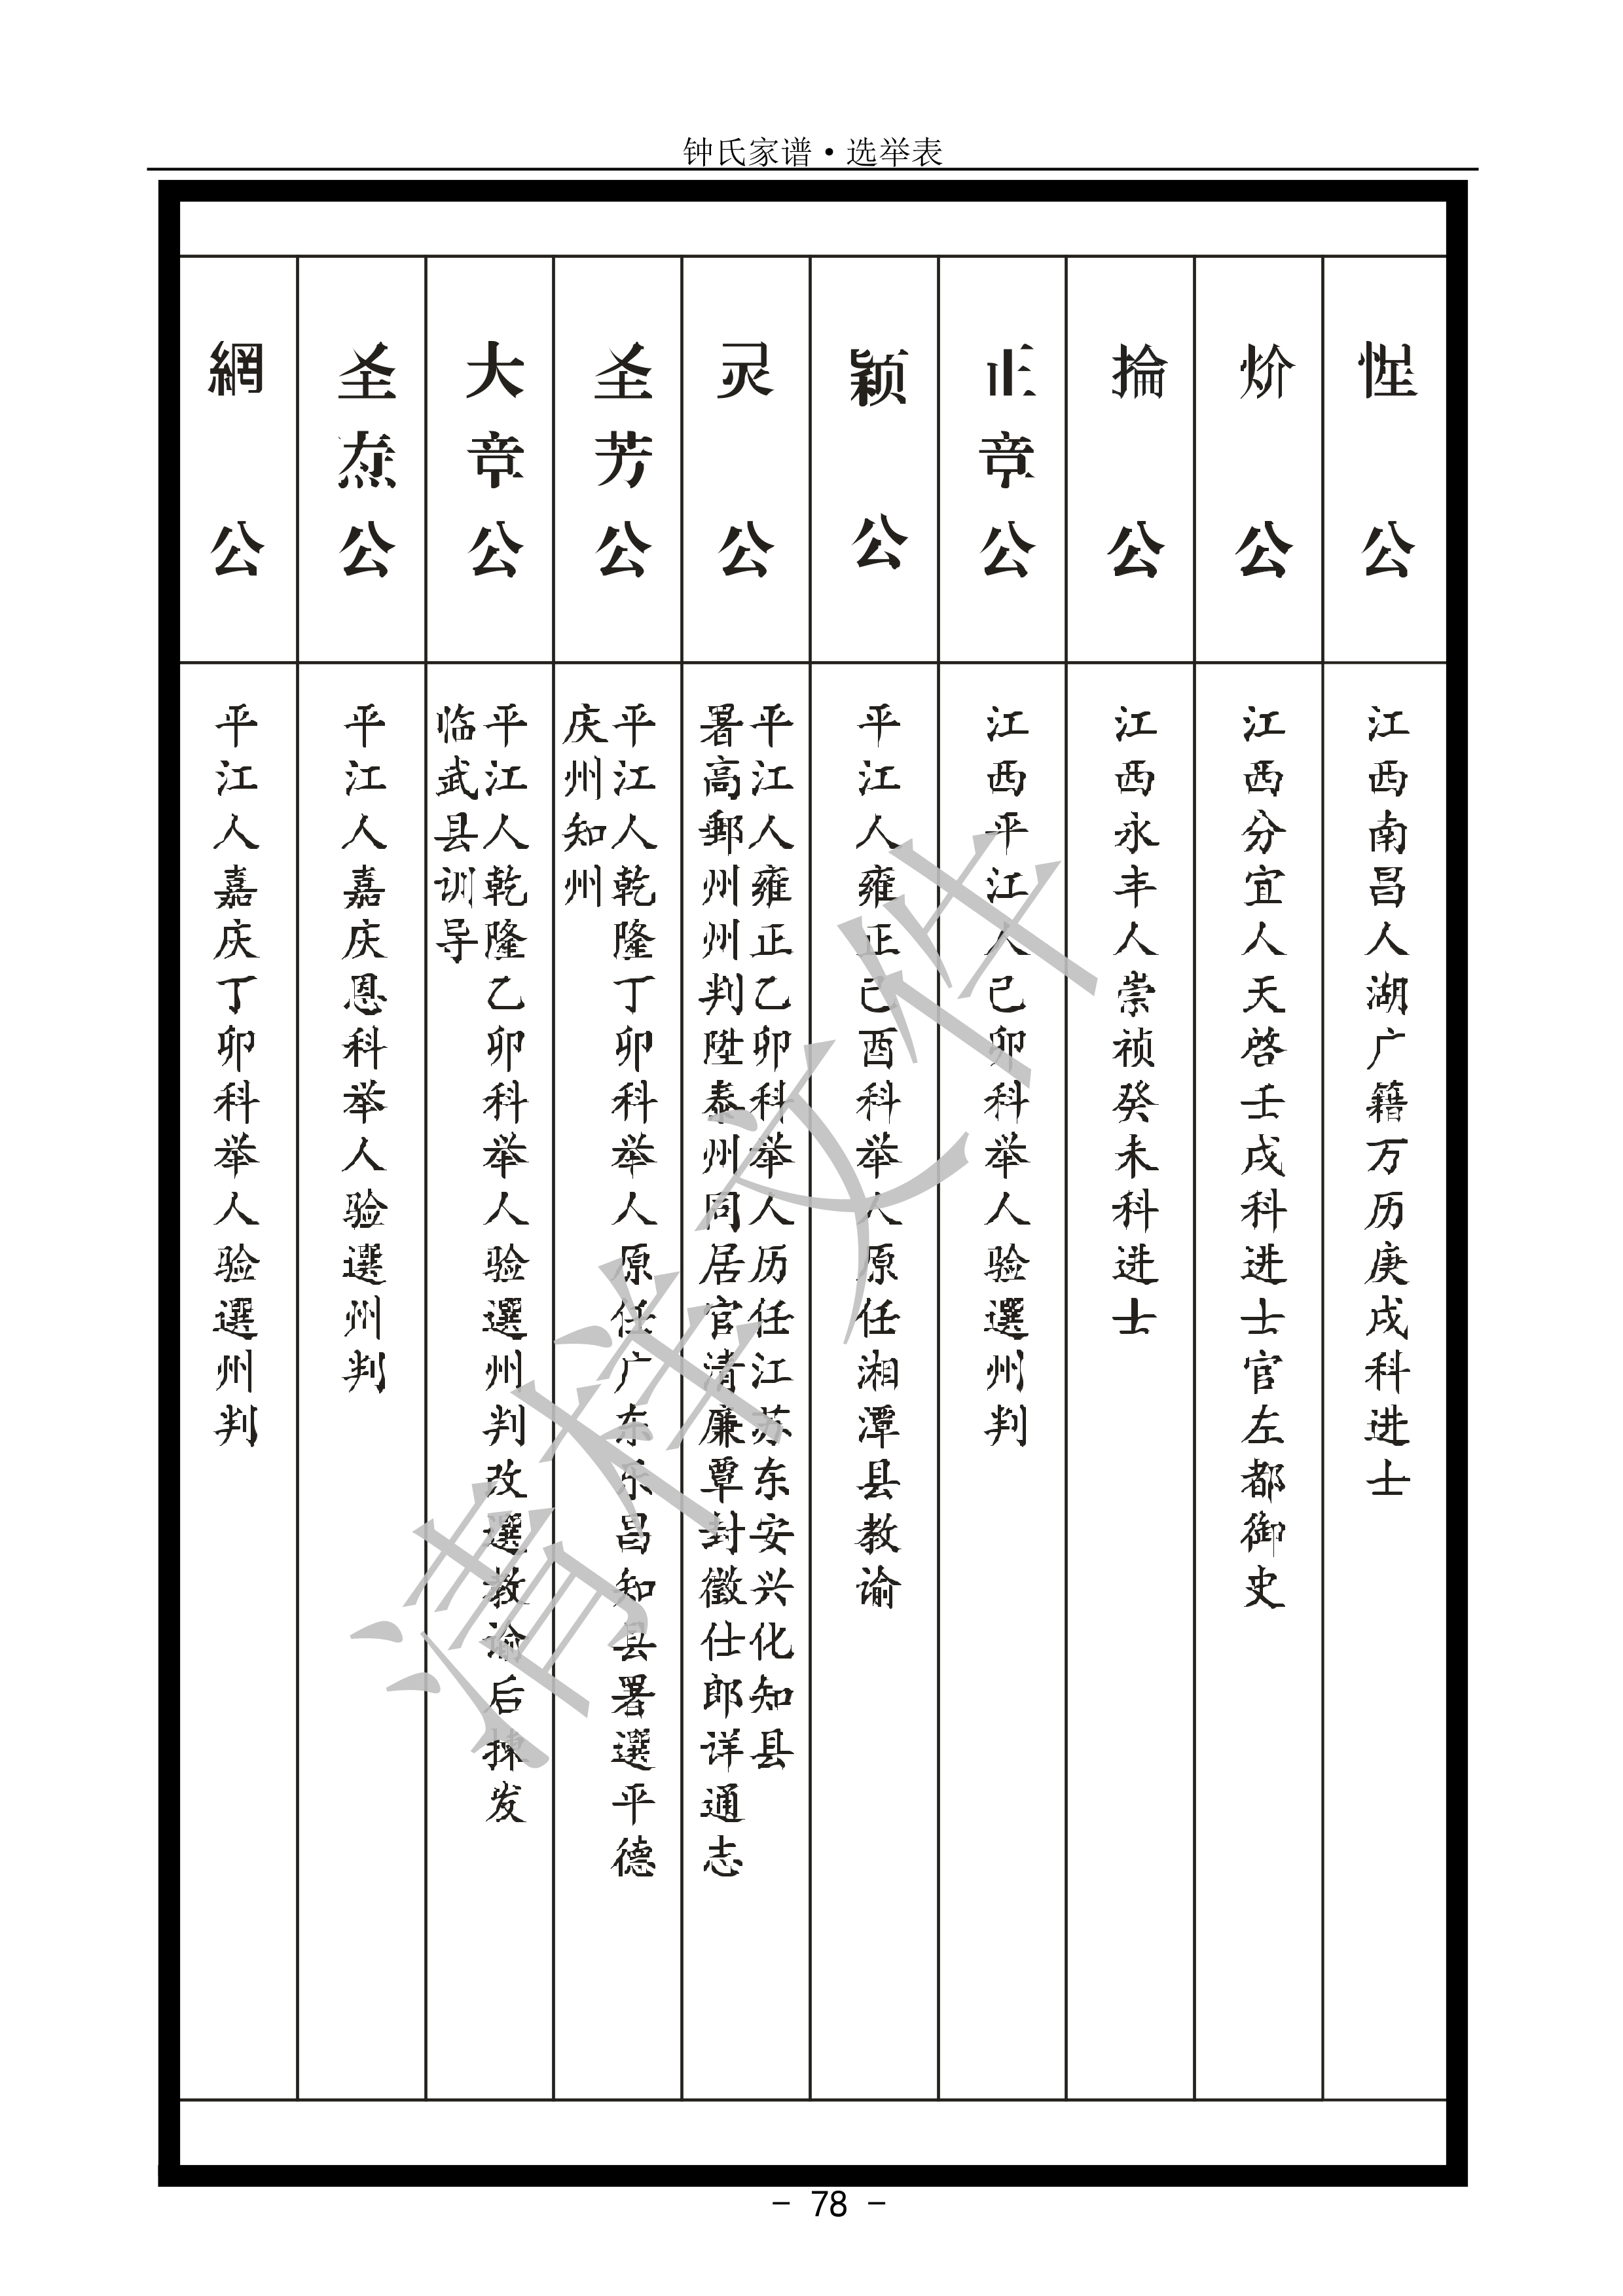 钟氏家谱·选举表
惺公
江西南昌人湖广籍万历庚戌科进士
炌公
江西分宜人天啓壬戌科进士官左都御史
掄公
江西永丰人崇祯癸未科进士
正章公
江西平江人己卯科举人验選州判
颖公
平江人雍正己酉科举人原任湘潭县教谕
灵公
平江人雍正乙卯科举人历任江苏东安兴化知县
署高郵州州判陞泰州同居官清廉覃封徵仕郎详通志
圣芳公
平江人乾隆丁卯科举人原任广东乐昌知县署選平德
庆州知州
大章公
平江人乾隆乙卯科举人验選州判改選教谕后揀发
临武县训导
圣焘公
平江人嘉庆恩科举人验選州判
網公
平江人嘉庆丁卯科举人验選州判
清样文件
- 78 -